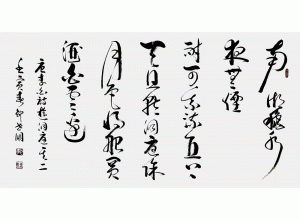 南湖秋水
夜無煙
耐可乘流直上
天且就洞庭賒
月色將船買
酒白雲邊
唐李白詩遊洞庭其二
壬寅春